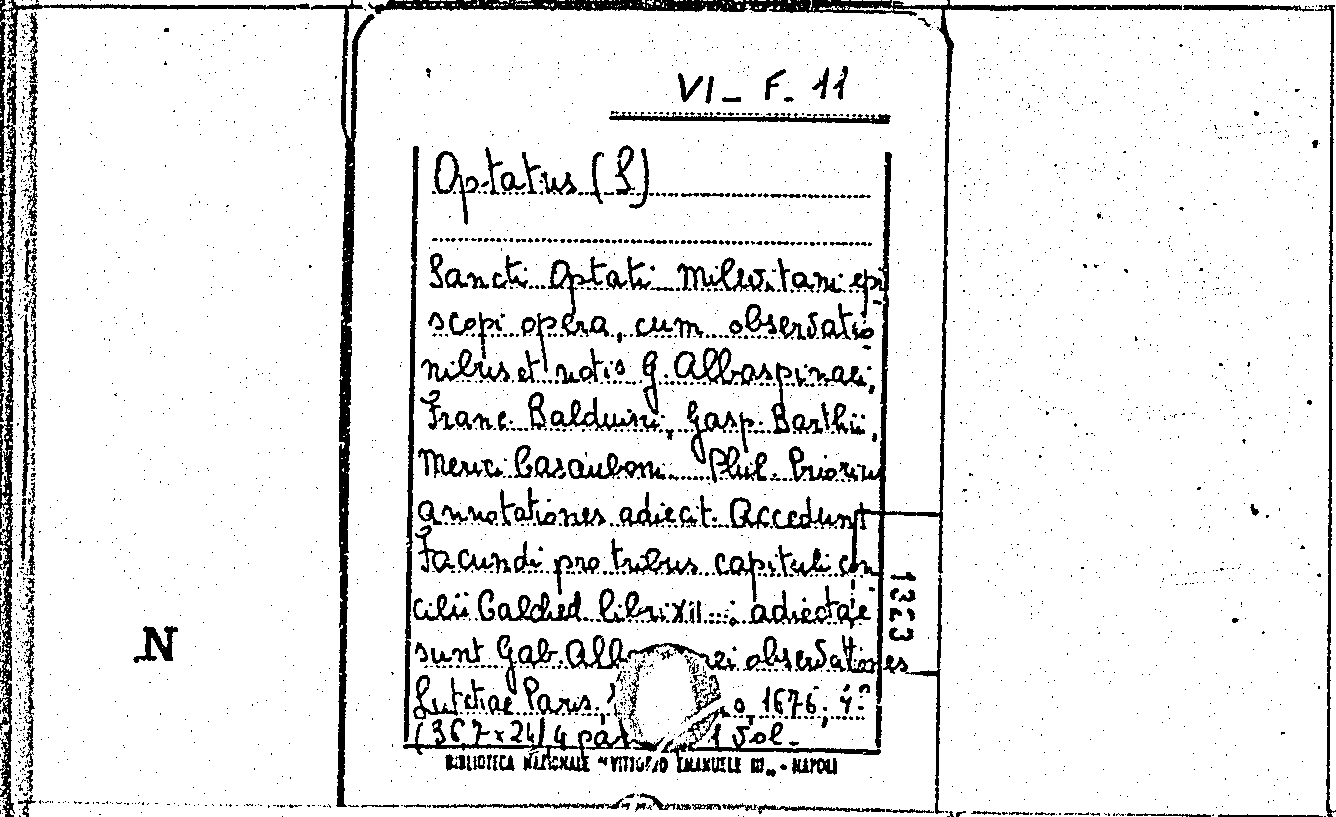 VI_ F. 11
Optatus (S)
Sancti Optati Milevitani epi
scopi opera, cum observatio
nibus et notis G. Albaspinaei,
Franc. Balduini, Gasp. Barthii,
Merici Casauboni. Phil. Priorius
annotationes adiecit. Accedunt
Facundi pro tribus capituli con
cilii Calched. libri XII ...; adiectae
sunt Gab. observationes
Lutetiae Paris., 1676; 4º
(36,7 x 24) 4 1 vol.
BIBLIOTECA NAZIONALE "VITTORIO EMANUELE III" - NAPOLI
1323
N